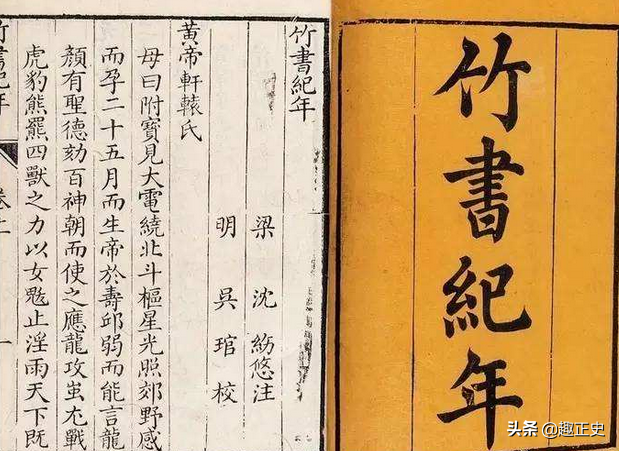 竹書紀年
竹書紀年
梁 沈 注
明 吳琯校
黃帝軒轅氏
母曰附寶見大電繞北斗樞星光照郊野感
而孕二十五月而生帝於壽邱弱而能言龍
顏有聖德劾百神朝而使之應龍攻蚩尤戰
虎豹熊羆四獸之力以女魃止淫雨天下既
竹書紀年 卷上 一
头条 @趣正史